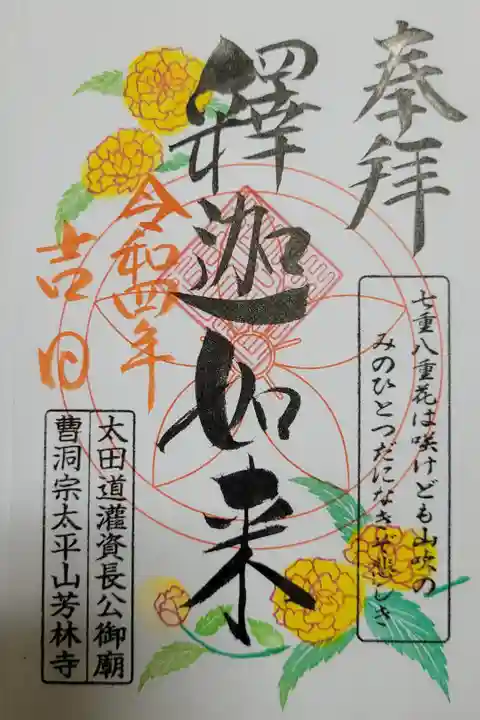 奉拝
七重八重花は咲けども山吹の
みのひとつだになきぞ悲しき
釋迦如来
令和四年
吉日
太田道灌資長公御廟
曹洞宗太平山芳林寺